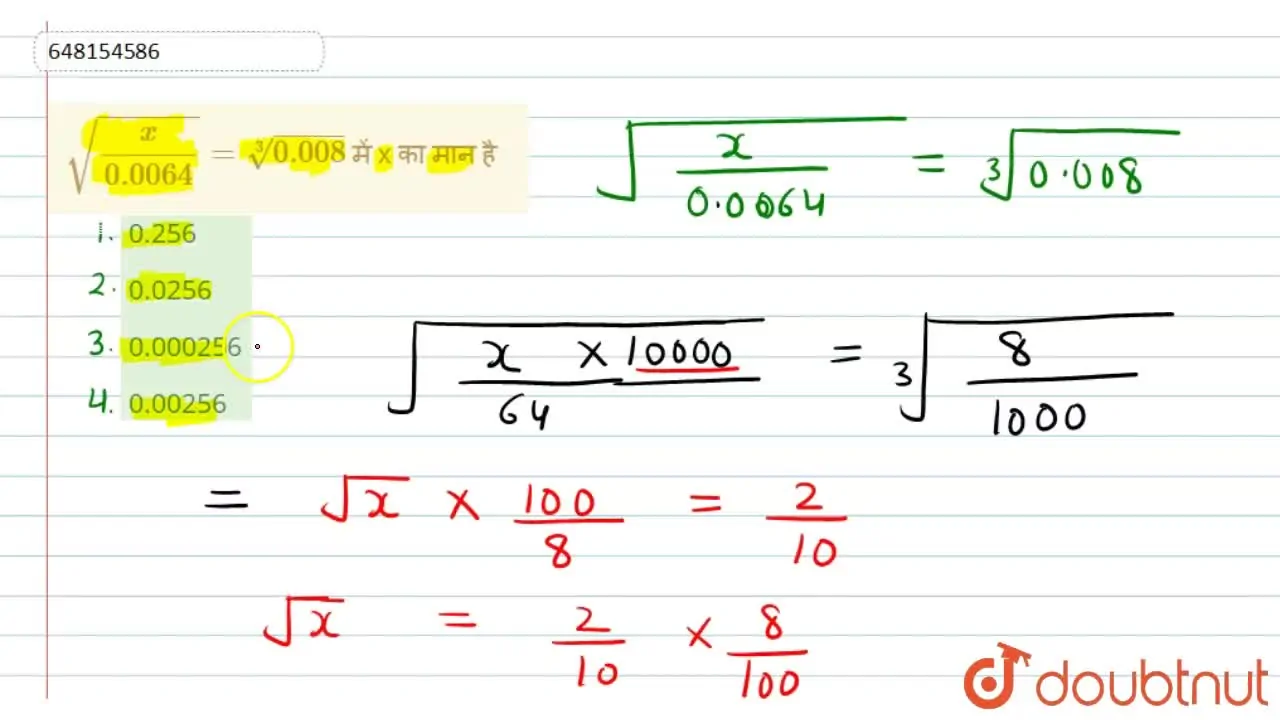 648154586
\sqrt{\frac{x}{0.0064}} = \sqrt[3]{0.008} में x का मान है
\sqrt{\frac{x}{0.0064}} = \sqrt[3]{0.008}
1. 0.256
2. 0.0256
3. 0.000256
4. 0.00256
\sqrt{\frac{x × 10000}{64}} = \sqrt[3]{\frac{8}{1000}}
= \sqrt{x} × \frac{100}{8} = \frac{2}{10}
\sqrt{x} = \frac{2}{10} × \frac{8}{100}
doubtnut